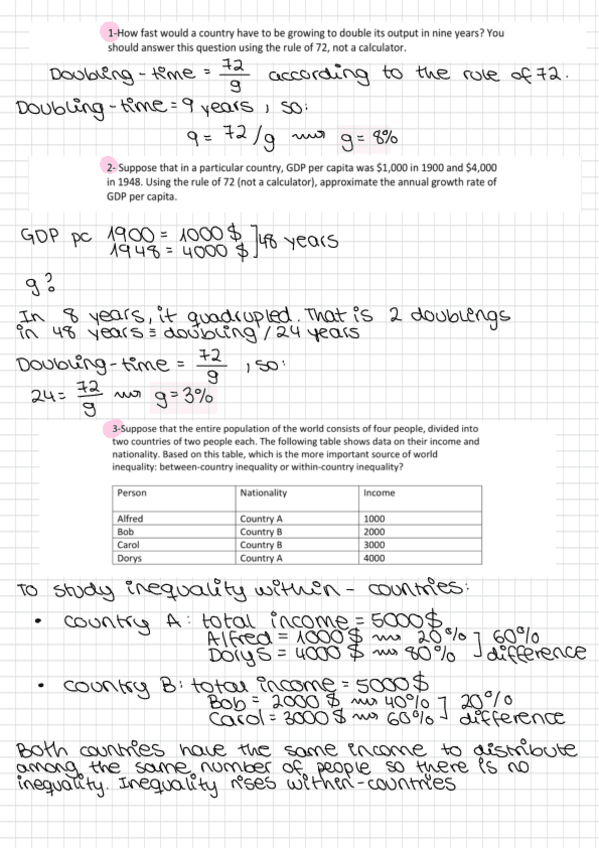 1-How fast would a country have to be growing to double its output in nine years? You
should answer this question using the rule of 72, not a calculator.
Doubling-time = 72/g according to the rule of 72.
Doubling-time = 9 years, so:
9 = 72/g → g = 8%
2- Suppose that in a particular country, GDP per capita was $1,000 in 1900 and $4,000
in 1948. Using the rule of 72 (not a calculator), approximate the annual growth rate of
GDP per capita.
GDP pc 1900 = 1000 $ ] 48 years
1948 = 4000 $
g?
In 8 years, it quadrupled. That is 2 doublings
in 48 years ≡ doubling / 24 years
Doubling-time = 72/g , so:
24 = 72/g → g = 3%
3-Suppose that the entire population of the world consists of four people, divided into
two countries of two people each. The following table shows data on their income and
nationality. Based on this table, which is the more important source of world
inequality: between-country inequality or within-country inequality?
Person Nationality Income
Alfred Country A 1000
Bob Country B 2000
Carol Country B 3000
Dorys Country A 4000
To study inequality within-countries:
• country A: total income = 5000 $
Alfred = 1000 $ → 20% ] 60%
Dorys = 4000 $ → 80% difference
• country B: total income = 5000 $
Bob = 2000 $ → 40% ] 20%
Carol = 3000 $ → 60% difference
Both countries have the same income to distribute
among the same number of people so there is no
inequality. Inequality rises within-countries